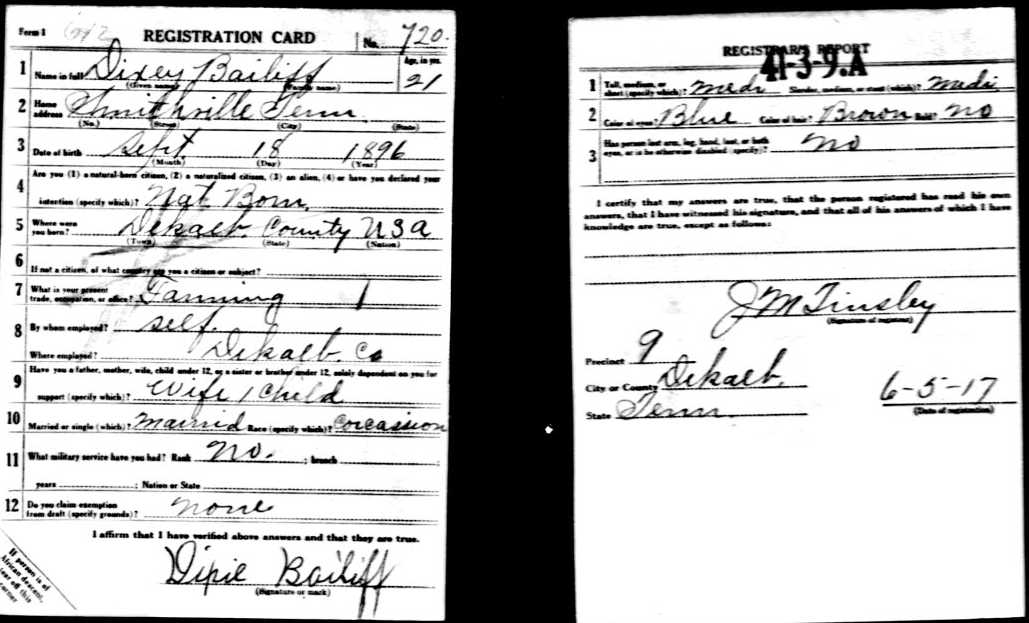 Form 1 642 REGISTRATION CARD No. 720.
1 Name in full Dixey Bailiff Age, in yrs. 21
(Given name) (Family name)
2 Home address Smithville Tenn.
(No.) (Street) (City) (State)
3 Date of birth Sept 18 1896
(Month) (Day) (Year)
4 Are you (1) a natural-born citizen, (2) a naturalized citizen, (3) an alien, (4) or have you declared your
intention (specify which)? Nat Born.
5 Where were you born? Dekalb. County USA
(Town) (State) (Nation)
6 If not a citizen, of what country are you a citizen or subject?
7 What is your present trade, occupation, or office? Farming 1
8 By whom employed? self.
Where employed? Dekalb. Co
9 Have you a father, mother, wife, child under 12, or a sister or brother under 12, solely dependent on you for
support (specify which)? Wife 1 Child
10 Married or single (which)? Married Race (specify which)? Corcassion
11 What military service have you had? Rank No. ; branch ;
years ; Nation or State
12 Do you claim exemption from draft (specify grounds)? none
I affirm that I have verified above answers and that they are true.
Dixie Bailiff
(Signature or mark)
If person is of
African descent,
tear off this
corner
REGISTRAR'S REPORT
41-3-9.A
1 Tall, medium, or short (specify which)? Medi Slender, medium, or stout (which)? Medi
2 Color of eyes? Blue Color of hair? Brown Bald? No
3 Has person lost arm, leg, hand, foot, or both eyes, or is he otherwise disabled (specify)? No
I certify that my answers are true, that the person registered has read his own
answers, that I have witnessed his signature, and that all of his answers of which I have
knowledge are true, except as follows:
J M Tinsley
(Signature of registrar)
Precinct 9
City or County Dekalb.
State Tenn.
6-5-17
(Date of registration)